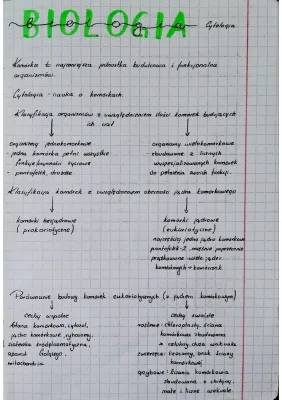 BIOLOGIA
Cytologia
Komórka to najmniejsza jednostka budulcowa i funkcjonalna
organizmów.
Cytologia - nauka o komórkach.
Klasyfikacja organizmów z uwzględnieniem ilości komórek budujących
ich
organizmy jednokomórkowe
- jedna komórka pełni wszystkie
funkcje życiowe
- pantofelek, drożdże
organizmy wielokomórkowe
- zbudowane z licznych
wyspecjalizowanych komórek
do pełnienia swoich funkcji.
Klasyfikacja komórek z uwzględnieniem obecności jądra komórkowego
komórki bezjądrowe
(prokariotyczne)
komórki jądrowe
(eukariotyczne)
najczęściej jedno jądro komórkowe
pantofelek - 2, mięśnie poprzecznie
prążkowane - wiele jąder
komórkowych
Porównanie budowy komórek eukariotycznych (z jądrem komórkowym)
cechy wspólne
błona komórkowa, cytozol,
jądro komórkowe, rybosomy,
siateczka śródplazmatyczna,
aparat Golgiego,
mitochondria
cechy
roślinne: chloroplasty, ściana
komórkowa zbudowana
z celulozy, duża wakuola
zwierzęce: brak ściany
komórkowej
grzybowe: ściana komórkowa
zbudowana z chityny,
małe i liczne wakuole